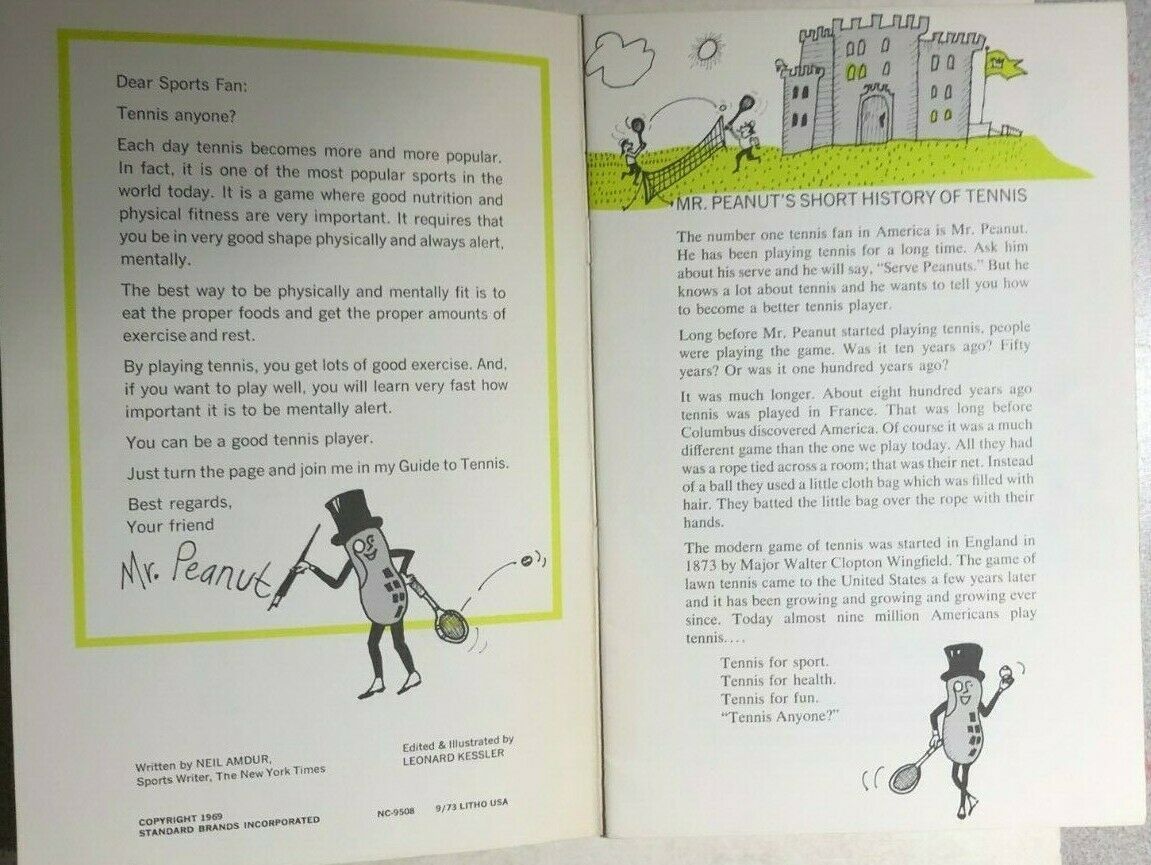 Dear Sports Fan:
Tennis anyone?
Each day tennis becomes more and more popular.
In fact, it is one of the most popular sports in the
world today. It is a game where good nutrition and
physical fitness are very important. It requires that
you be in very good shape physically and always alert,
mentally.
The best way to be physically and mentally fit is to
eat the proper foods and get the proper amounts of
exercise and rest.
By playing tennis, you get lots of good exercise. And,
if you want to play well, you will learn very fast how
important it is to be mentally alert.
You can be a good tennis player.
Just turn the page and join me in my Guide to Tennis.
Best regards,
Your friend
Mr. Peanut
Written by NEIL AMDUR,
Sports Writer, The New York Times
Edited & Illustrated by
LEONARD KESSLER
COPYRIGHT 1969
STANDARD BRANDS INCORPORATED
NC-9508
9/73 LITHO USA
MR. PEANUT'S SHORT HISTORY OF TENNIS
The number one tennis fan in America is Mr. Peanut.
He has been playing tennis for a long time. Ask him
about his serve and he will say, “Serve Peanuts.” But he
knows a lot about tennis and he wants to tell you how
to become a better tennis player.
Long before Mr. Peanut started playing tennis, people
were playing the game. Was it ten years ago? Fifty
years? Or was it one hundred years ago?
It was much longer. About eight hundred years ago
tennis was played in France. That was long before
Columbus discovered America. Of course it was a much
different game than the one we play today. All they had
was a rope tied across a room; that was their net. Instead
of a ball they used a little cloth bag which was filled with
hair. They batted the little bag over the rope with their
hands.
The modern game of tennis was started in England in
1873 by Major Walter Clopton Wingfield. The game of
lawn tennis came to the United States a few years later
and it has been growing and growing and growing ever
since. Today almost nine million Americans play
tennis....
Tennis for sport.
Tennis for health.
Tennis for fun.
“Tennis Anyone?”